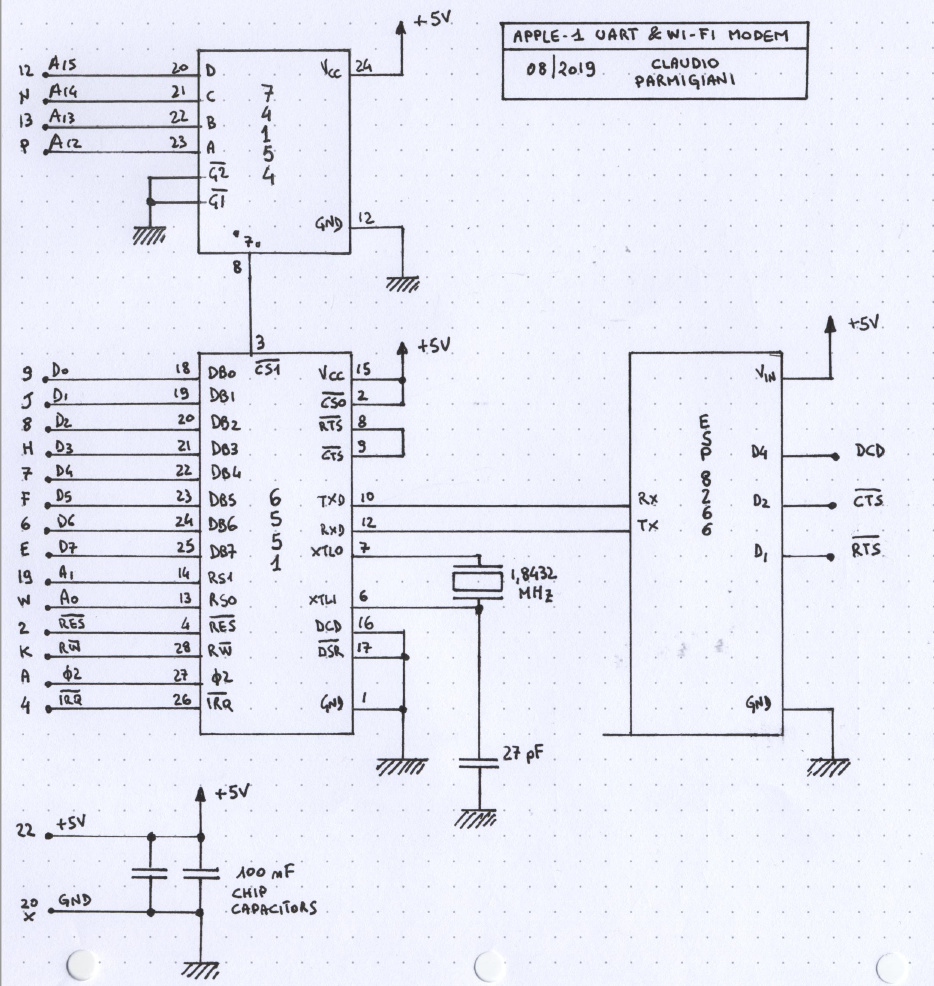 APPLE-1 UART & WI-FI MODEM
08/2019 CLAUDIO
PARMIGIANI
+5V
12 A15 20 D
N A14 21 C
13 A13 22 B
P A12 23 A
G2
G1
74154
VCC 24
GND 12
"7"
8
3
CS1
9 D0 18 DB0
J D1 19 DB1
8 D2 20 DB2
H D3 21 DB3
7 D4 22 DB4
F D5 23 DB5
6 D6 24 DB6
E D7 25 DB7
19 A1 14 RS1
W A0 13 RS0
2 RES 4 RES
K RW 28 RW
A φ2 27 φ2
4 IRQ 26 IRQ
6551
+5V
VCC 15
CS0 2
RTS 8
CTS 9
TXD 10
RXD 12
XTLO 7
XTLI 6
DCD 16
DSR 17
GND 1
1,8432
MHZ
27 pF
ESP8266
Rx
TX
+5V
VIN
D4 DCD
D2 CTS
D1 RTS
GND
+5V
22 +5V
100 nF
CHIP
CAPACITORS
20 GND
X